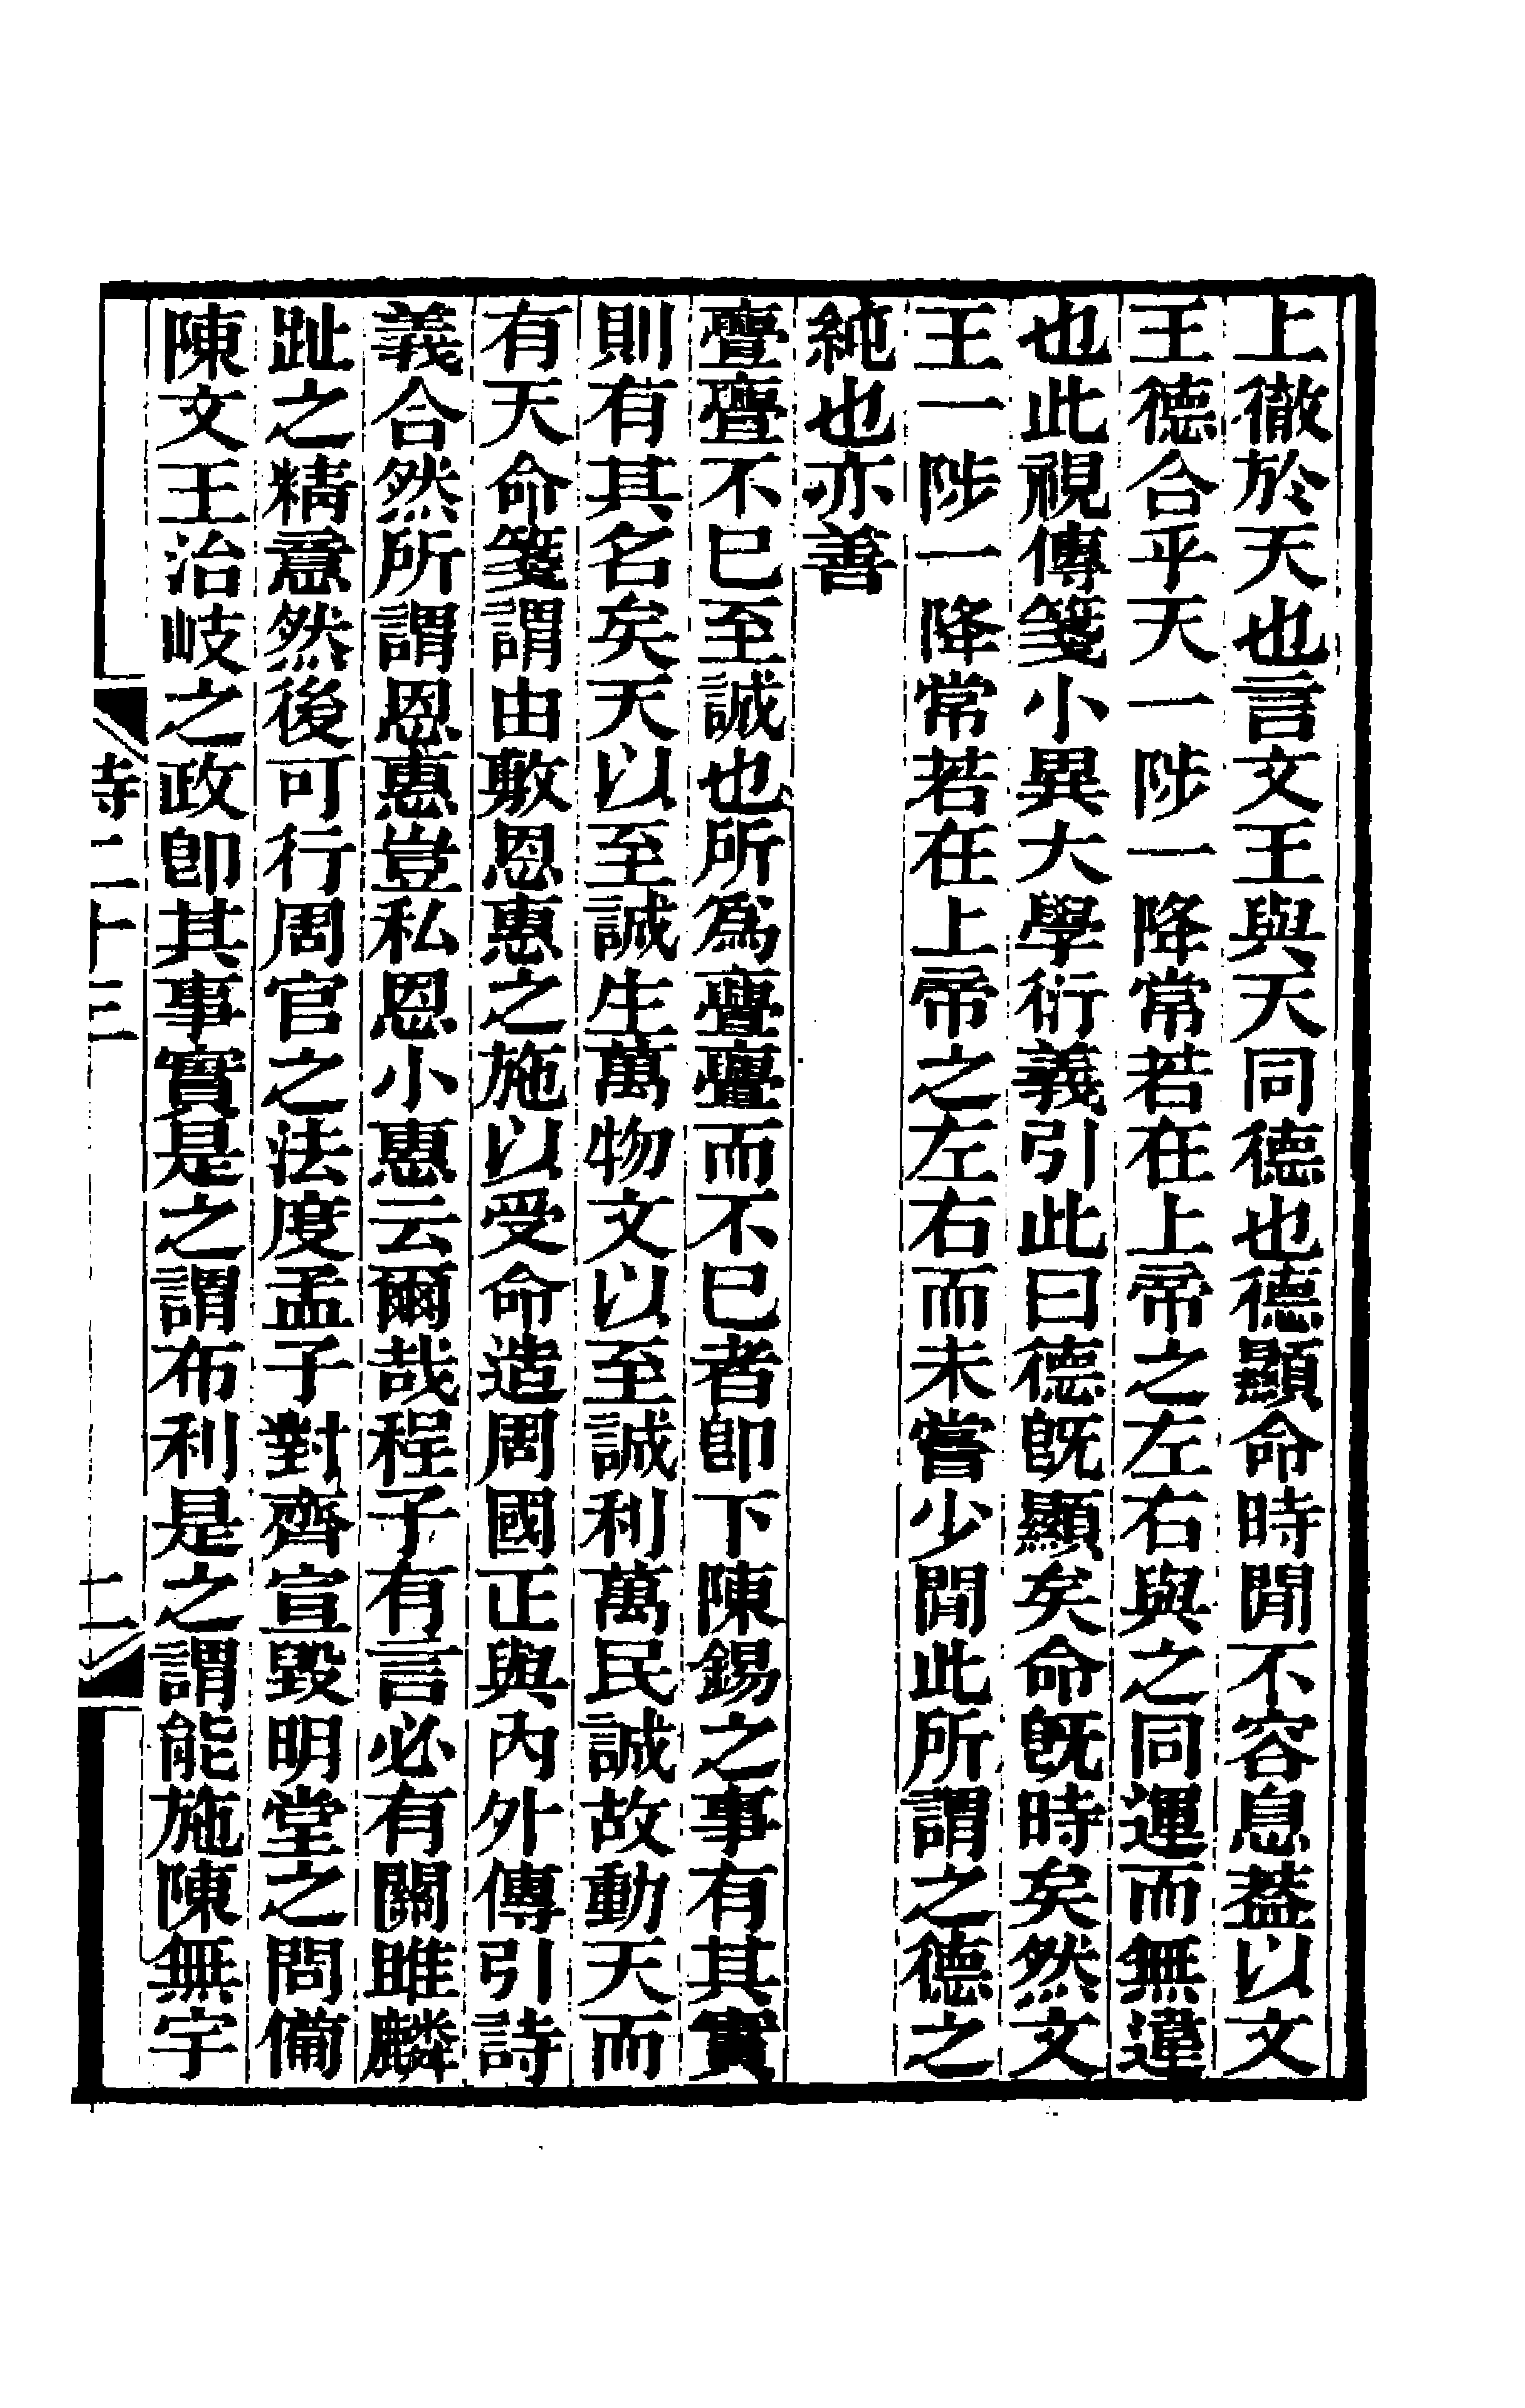 上徹於天也言文王與天同德也德顯命時閒不容息葢以文
王德合乎天一陟一降常若在上帝之左右與之同運而無違
也此視傳箋小異大學衍義引此曰德旣顯矣命旣時矣然文
王一陟一降常若在上帝之左右而未嘗少閒此所謂之德之
純也亦善
亹亹不已至誠也所爲亹亹而不已者卽下陳錫之事有其實
則有其名矣天以至誠生萬物文以至誠利萬民誠故動天而
有天命箋謂由敷恩惠之施以受命造周國正與內外傳引詩
義合然所謂恩惠豈私恩小惠云爾哉程子有言必有關雎麟
趾之精意然後可行周官之法度孟子對齊宣毀明堂之問備
陳文王治岐之政卽其事實是之謂布利是之謂能施陳無宇
詩二十三
二